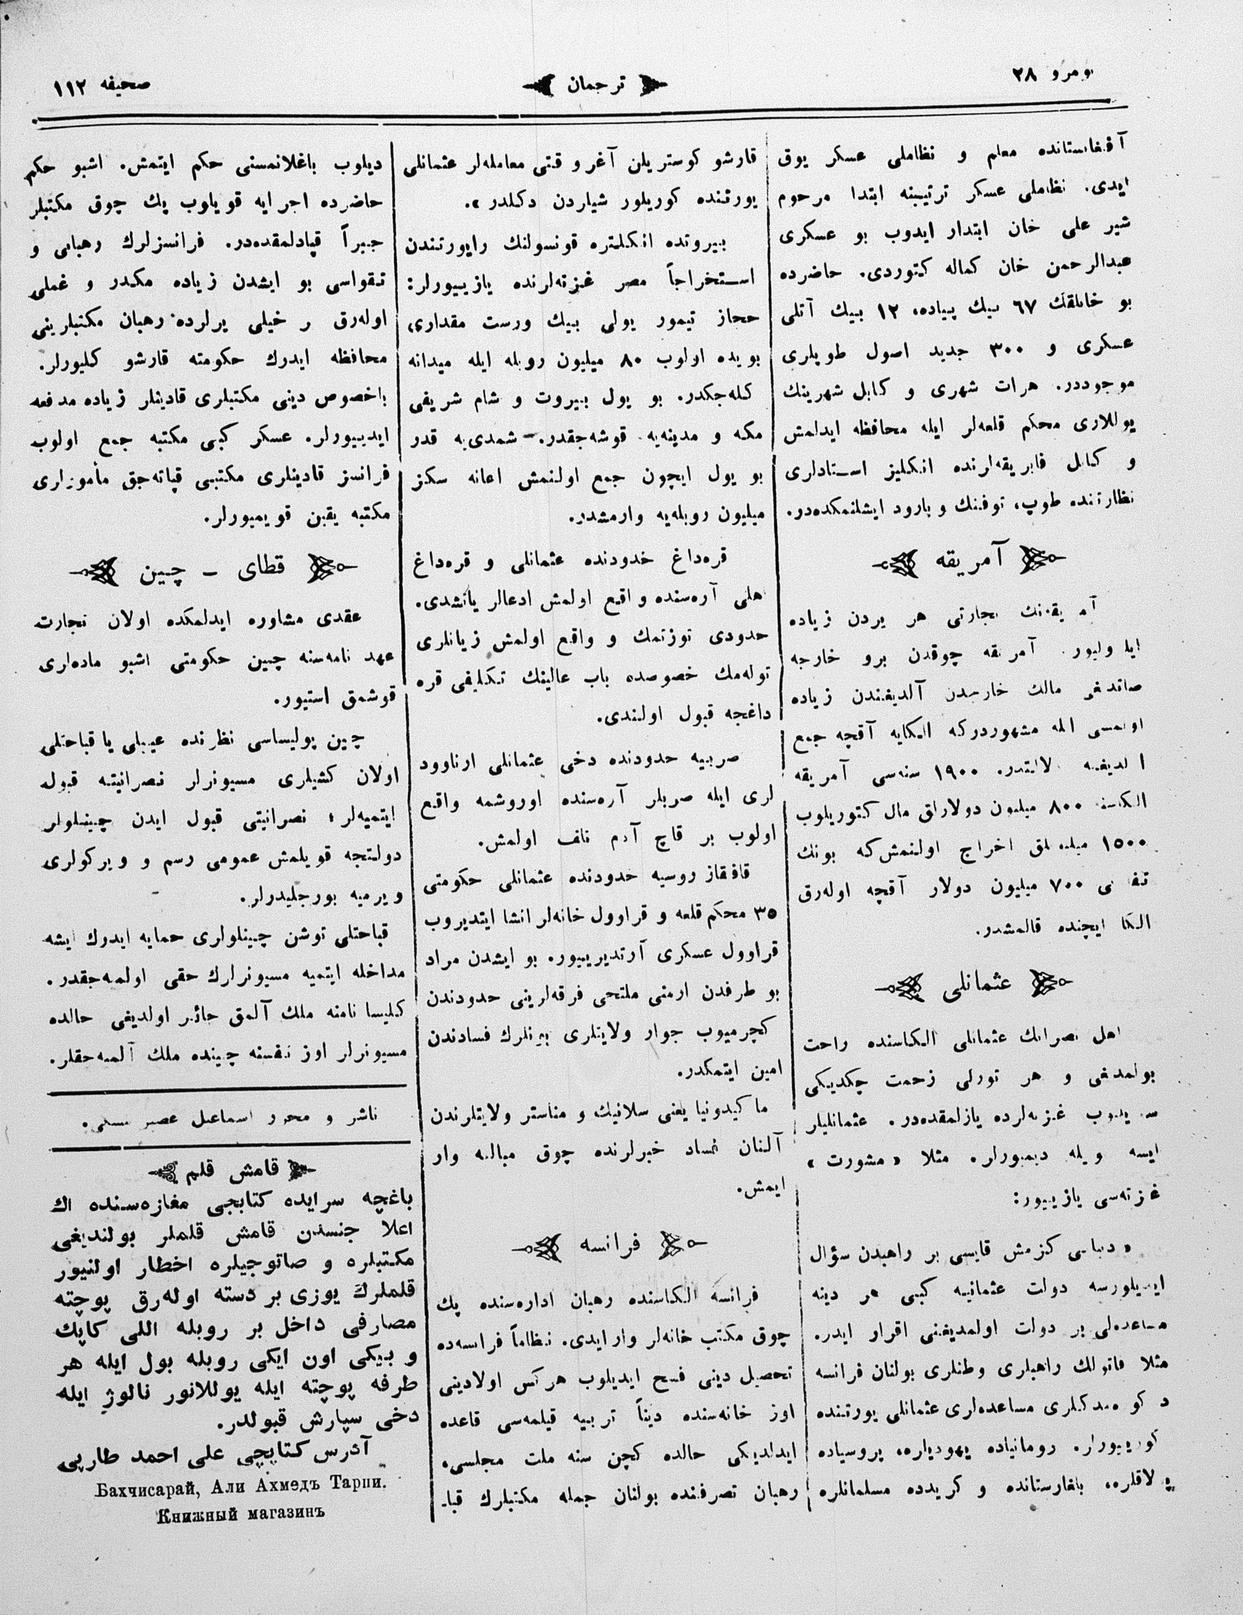 نومرو ٢٨
ترجمان
صحيفه ١١٢
آفغانستانده معلم و نظاملى عسكر يوق
ايدى. نظاملى عسكر ترتيبنه ابتدا مرحوم
شير على خان ابتدار ايدوب بو عسكرى
عبدالرحمن خان كماله كتوردى. حاضرده
بو خانلقك ٦٧ بيك پياده، ١٢ بيك آتلى
عسكرى و ٣٠٠ جديد اصول طوپلرى
موجوددر. هرات شهرى و كابل شهرينك
يوللارى محكم قلعه‌لر ايله محافظه ايدلمش
و كابل فابريقه‌لرنده انكليز استادلرى
نظارتنده طوپ، توفنك و بارود ايشلنمكده‌در.
آمريقه
آمريقه‌نك تجارتى هر يردن زياده
ايلروليور. آمريقه چوقدن برو خارجه
صاتدغى مالك خارجدن آلديغندن زياده
اولمسى ايله مشهوردركه الكايه آقچه جمع
اولديغنه دلالتدر. ١٩٠٠ سنه‌سى آمريقه
الكاسنه ٨٠٠ ميليون دولارلق مال كتوريلوب
١٥٠٠ ميليونلق اخراج اولنمش‌كه بونك
٧٠٠ ميليون دولار آقچه اوله‌رق
الكا ايچنده قالمشدر.
عثمانلى
اهل نصرانك عثمانلى الكاسنده راحت
بولمدغى و هر تورلى زحمت چكديكى
غزته‌لرده يازلمقده‌در. عثمانليلر
ايسه ويله ديميورلر. مثلا «مشورت»
غزته‌سى يازييور:
«دنيايى كزمش قايسى بر راهبدن سؤال
ايديلورسه دولت عثمانيه كبى هر دينه
مساعده‌لى بر دولت اولمديغنى اقرار ايدر.
مثلا قاتولك راهبلرى وطنلرى بولنان فرانسه
ده كورمدكلرى مساعده‌لرى عثمانلى يورتنده
كورييورلر. رومانياده يهوديلره، پروسياده
پولاقلره، بلغارستانده و كريدده مسلمانلره
قارشو كوستريلن آغر و قتى معامله‌لر عثمانلى
يورتنده كوريلور شيلردن دكلدر».
بيروتده انكلتره قونسولنك راپورتندن
استخراجاً مصر غزته‌لرنده يازييورلر:
حجاز تيمور يولى بيك ورست مقدارى
بويده اولوب ٨٠ ميليون روبله ايله ميدانه
كله‌جكدر. بو يول بيروت و شام شريفى
مكه و مدينه‌يه قوشه‌جقدر.— شمدى‌يه قدر
بو يول ايچون جمع اولنمش اعانه سكز
ميليون روبله‌يه وارمشدر.
قره‌داغ حدودنده عثمانلى و قره‌داغ
اهلى آره‌سنده واقع اولمش ادعالر ياتشدى.
حدودى توزتمك و واقع اولمش زيانلرى
توله‌مك خصوصده باب عالينك تكليفى قره
داغجه قبول اولندى.
صربيه حدودنده دخى عثمانلى ارناوود
لرى ايله صربلر آره‌سنده اوروشمه واقع
اولوب بر قاچ آدم تلف اولمش.
قافقاز روسيه حدودنده عثمانلى حكومتى
٣٥ محكم قلعه و قراوول خانه‌لر انشا ايتديروب
قراوول عسكرى آرتديرييور. بو ايشدن مراد
بو طرفدن ارمنى ملتجى فرقه‌لرينى حدودندن
كچرميوب جوار ولايتلرى بونلرك فسادندن
امين ايتمكدر.
ماكيدونيا يعنى سلانيك و مناستر ولايتلرندن
آلنان فساد خبرلرنده چوق مبالغه وار
ايمش.
فرانسه
فرانسه الكاسنده رهبان اداره‌سنده پك
چوق مكتب خانه‌لر وار ايدى. نظاماً فرانسه‌ده
تحصيل دينى فسخ ايديلوب هركس اولادينى
اوز خانه‌سنده ديناً تربيه قيلمه‌سى قاعده
ايدلديكى حالده كچن سنه ملت مجلسى،
رهبان تصرفنده بولنان جمله مكتبلرك قبا-
ديلوب باغلانمسنى حكم ايتمش. اشبو حكم
حاضرده اجرايه قويلوب پك چوق مكتبلر
جبراً قپادلمقده‌در. فرانسزلرك رهبانى و
تقواسى بو ايشدن زياده مكدر و غملى
اوله‌رق بر خيلى يرلرده رهبان مكتبلرينى
محافظه ايدرك حكومته قارشو كليورلر.
باخصوص دينى مكتبلرى قادينلر زياده مدفعه
ايدييورلر. عسكر كبى مكتبه جمع اولوب
فرانسز قادينلرى مكتبى قپاته‌جق مأمورلرى
مكتبه يقين قويميورلر.
قطاى – چين
عقدى مشاوره ايدلمكده اولان تجارت
عهد نامه‌سنه چين حكومتى اشبو ماده‌لرى
قوشمق استيور.
چين پوليساسى نظرنده عيبلى يا قباحتلى
اولان كشيلرى مسيونرلر نصرانيته قبوله
ايتميه‌لر؛ نصرانيتى قبول ايدن چينلولر
دولتجه قويلمش عمومى رسم و ويركولرى
ويرميه بورجليدرلر.
قباحتلى توشن چينلولرى حمايه ايدرك ايشه
مداخله ايتميه مسيونرلرك حقى اولمه‌جقدر.
كليسا نامنه ملك آلمق جائز اولديغى حالده
مسيونرلر اوز نفسنه چينده ملك آلميه‌جقلر.
ناشر و محرر اسماعيل عصپرنسكى.
قامش قلم
باغچه سرايده كتابجى مغازه‌سنده اك
اعلا جنسدن قامش قلملر بولنديغى
مكتبلره و صاتوجيلره اخطار اولنيور
قلملرك يوزى بر دسته اوله‌رق پوچته
مصارفى داخل بر روبله اللى كاپك
و بيكى اون ايكى روبله بول ايله هر
طرفه پوچته ايله يوللانور نالوژ ايله
دخى سپارش قبولدر.
آدرس كتابچى على احمد طارپى
Бахчисарай, Али Ахмедъ Тарпи.
Книжный магазинъ